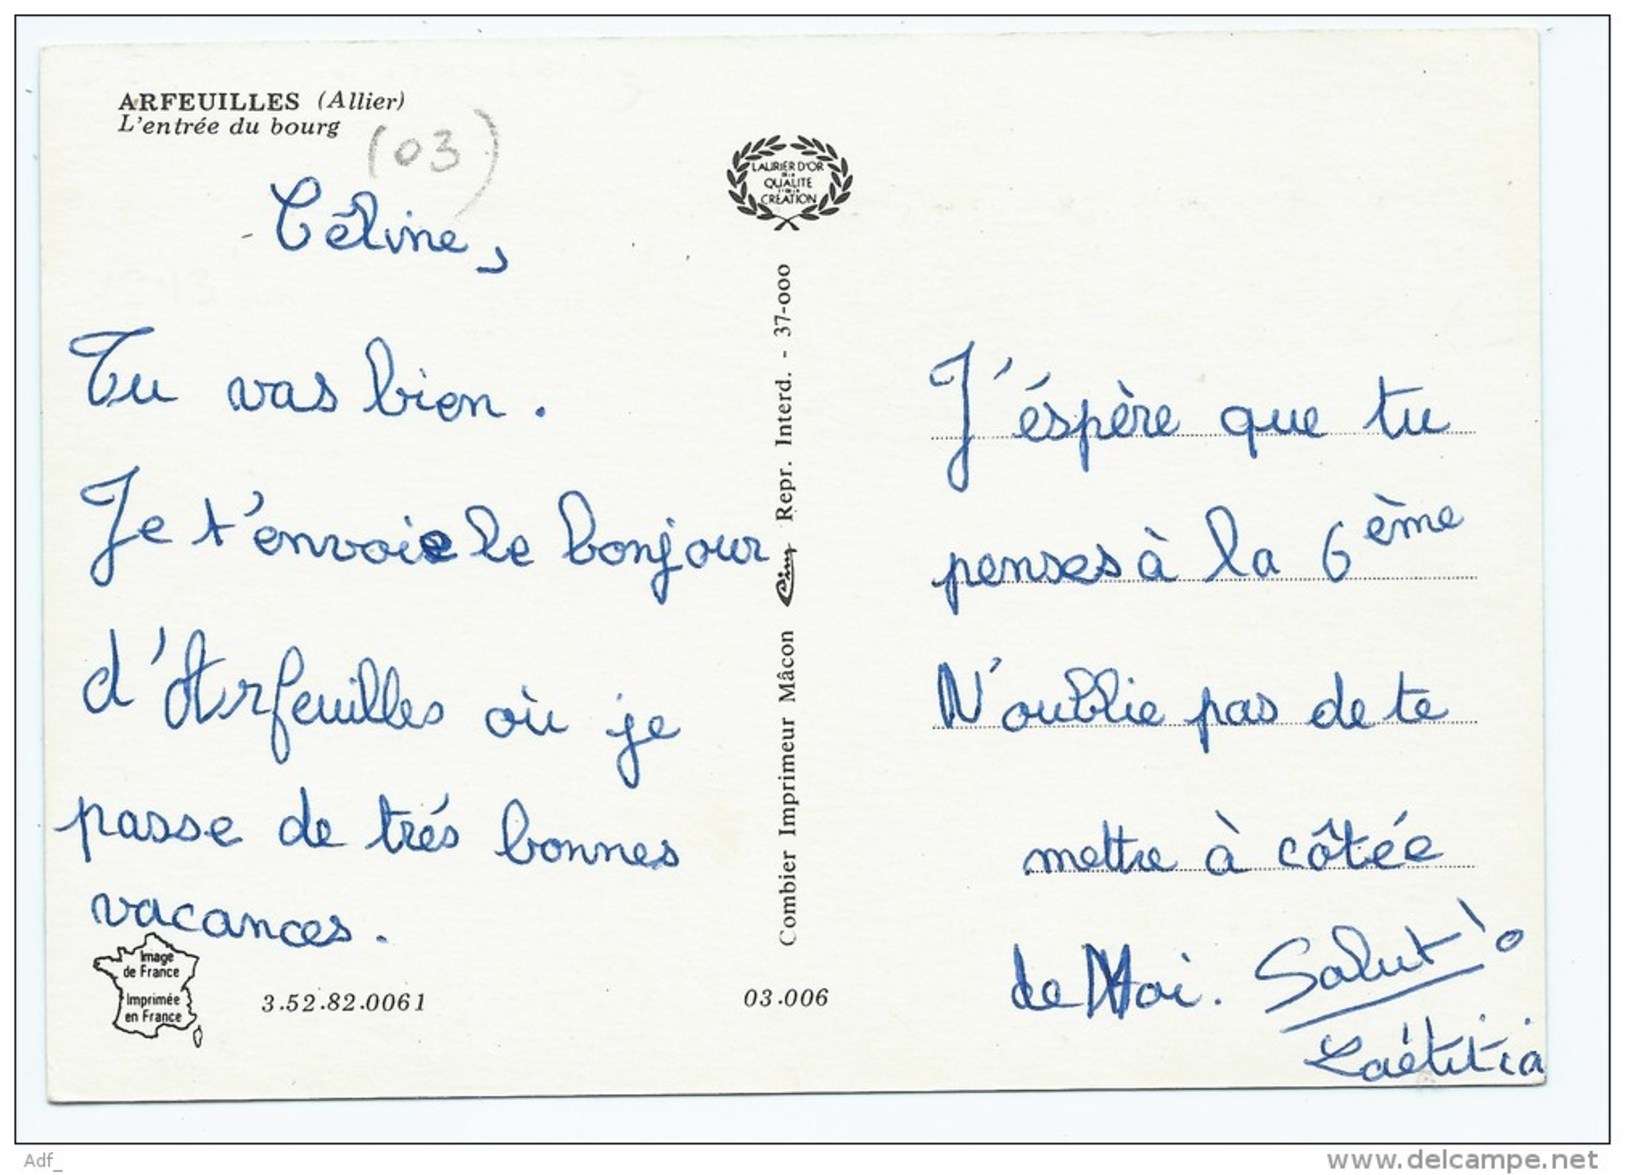 ARFEUILLES (Allier)
L'entrée du bourg
(03)
Céline,
Tu vas bien.
Je t'envoie le bonjour
d'Arfeuilles où je
passe de trés bonnes
vacances.
Image
de France
Imprimée
en France
3.52.82.0061
LAURIER D'OR
DE LA
QUALITE
CRÉATION
Combier Imprimeur Mâcon Cim Repr. Interd. - 37-000
03.006
J'éspère que tu
penses à la 6ème
N'oublie pas de te
mettre à côtée
de Moi. Salut!
Laëtitia
Adf_
www.delcampe.net